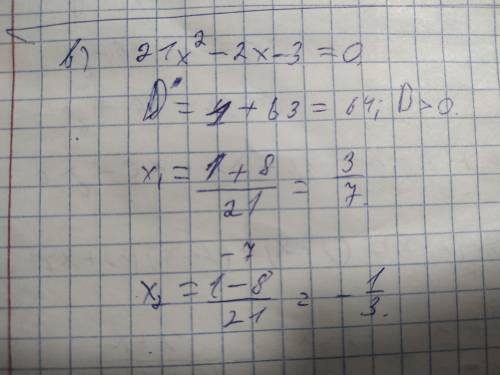 в) 21x² - 2x - 3 = 0.
D' = 1 + 63 = 64; D > 0.
x₁ = (1 + 8)/21 = 3/7.
-7
x₂ = (1 - 8)/21 = -1/3.